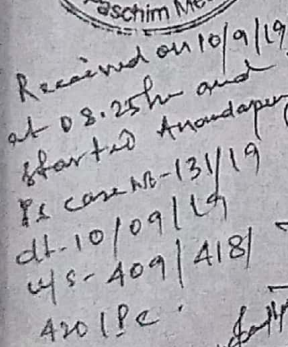 Paschim Me
Received on 10/9/19
at 08.25 hr and
started Anandapur
PS case No-131/19
dt-10/09/19
u/s-409/418/
420 IPC.